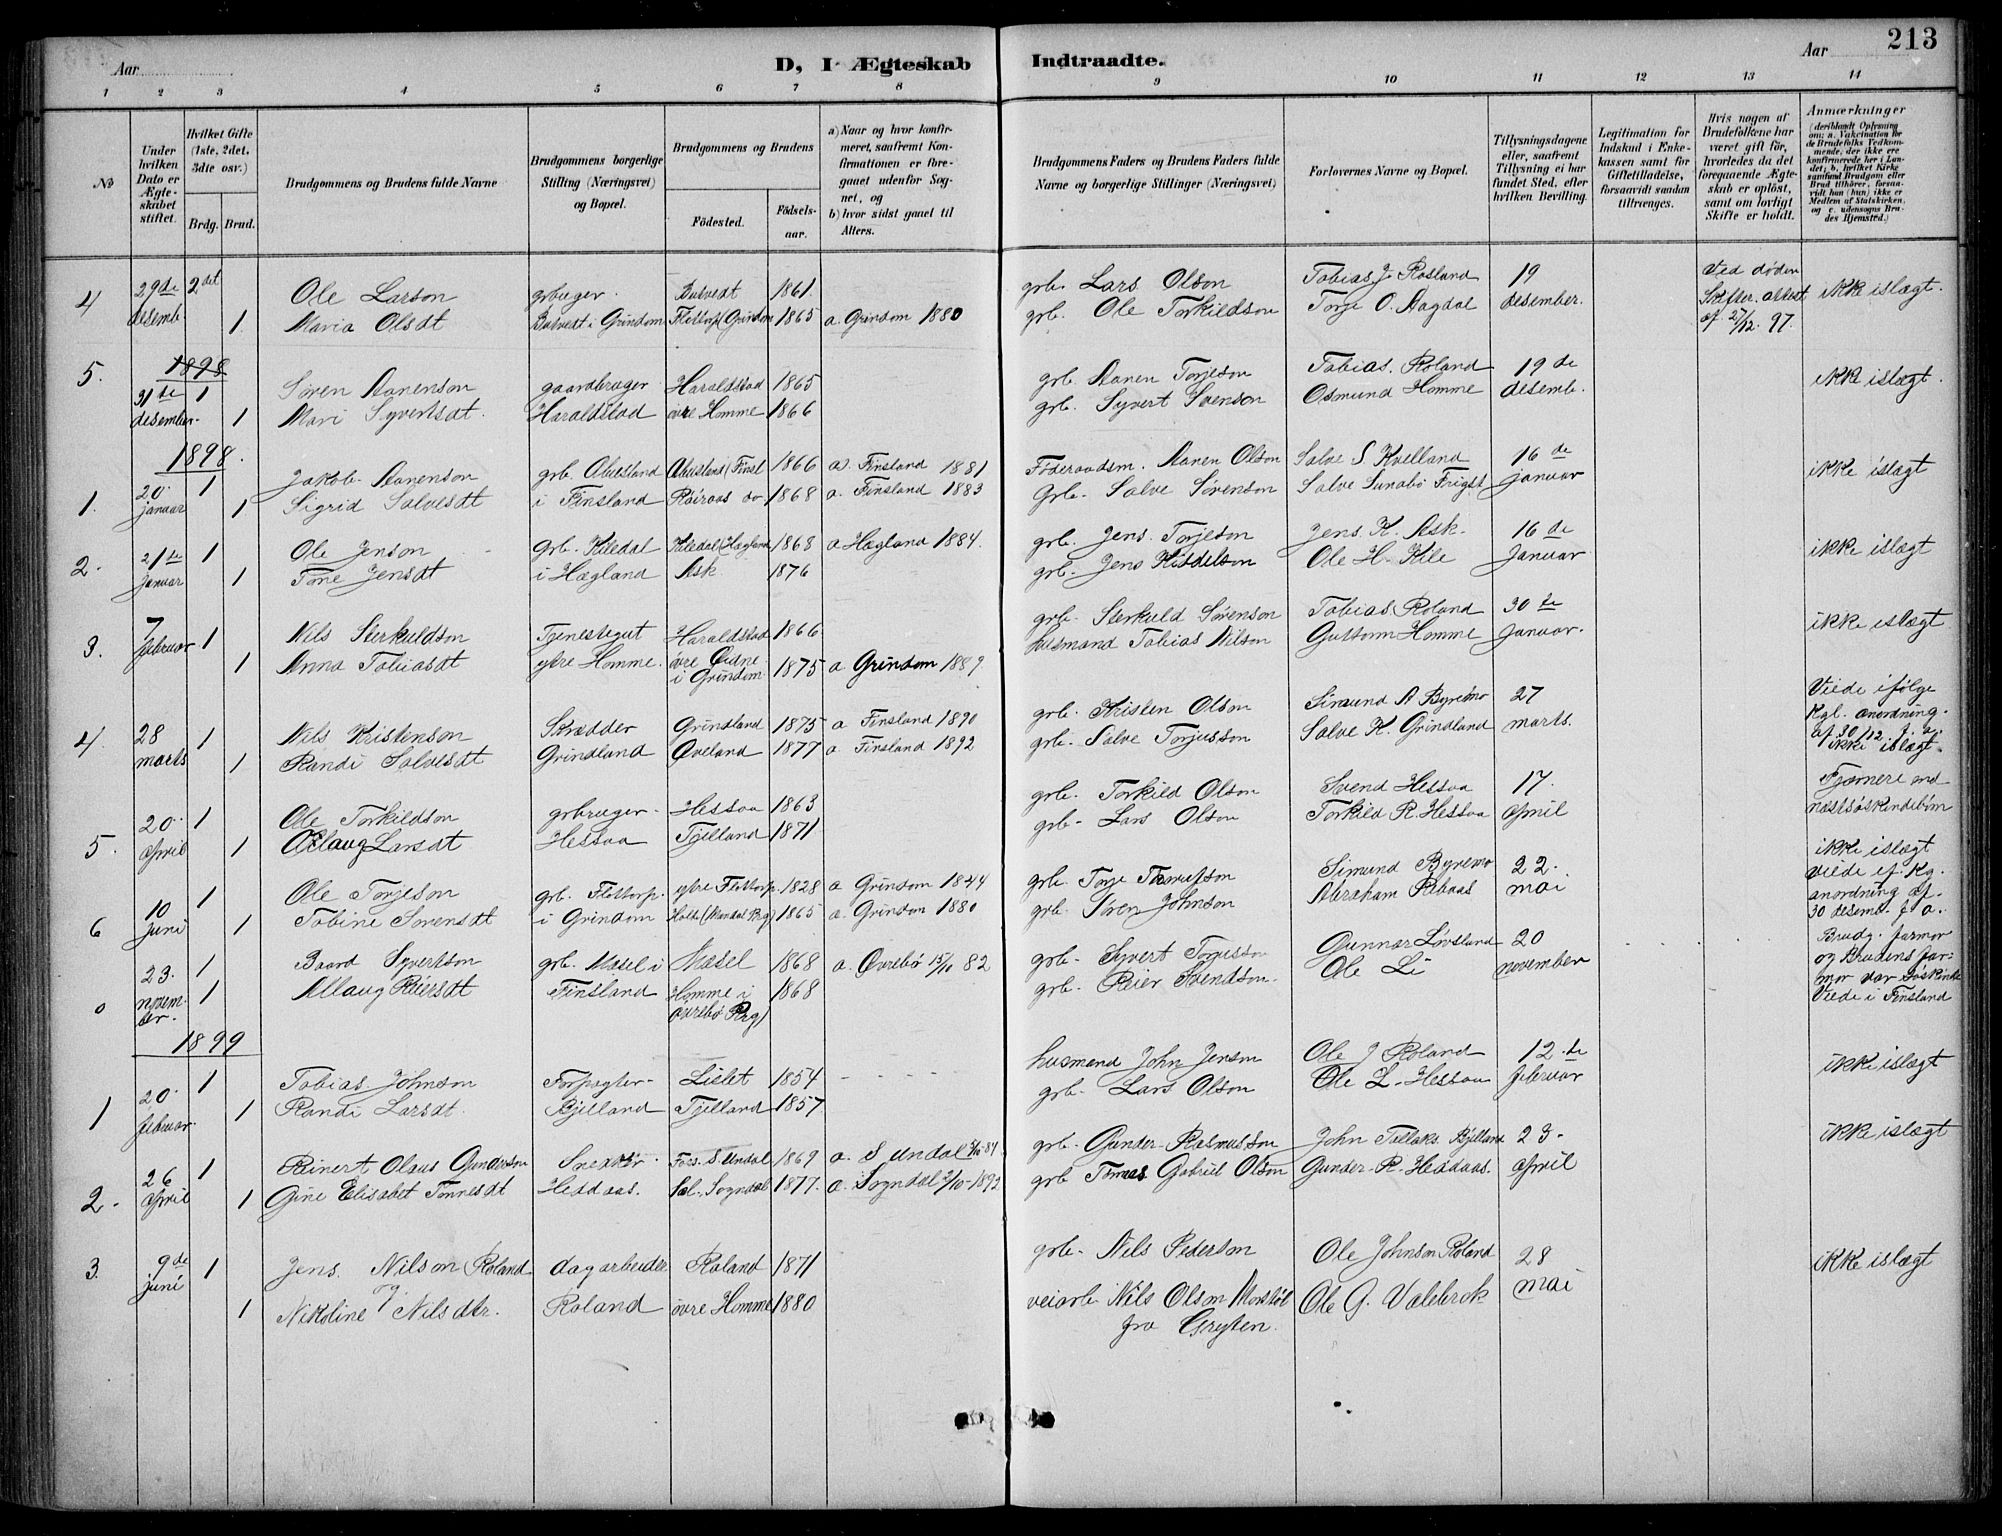 213
Aar
D, I Ægteskab
Indtraadte.
Aar
1 2 3 4 5 6 7 8 9 10 11 12 13 14
No
Under hvilken Dato er Ægteskabet stiftet.
Hvilket Gifte (1ste, 2det, 3dte osv.)
Brdg. Brud.
Brudgommens og Brudens fulde Navne
Brudgommens borgerlige Stilling (Næringsvei) og Bopæl.
Brudgommens og Brudens
Fødested. Fødselsaar.
a) Naar og hvor konfirmeret, saafremt Konfirmationen er foregaaet udenfor Sognet, og
b) hvor sidst gaaet til Alters.
Brudgommens Faders og Brudens Faders fulde Navne og borgerlige Stillinger (Næringsvei)
Forlovernes Navne og Bopæl.
Tillysningsdagene eller, saafremt Tillysning ei har fundet Sted, efter hvilken Bevilling.
Legitimation for Indskud i Enkekassen samt for Giftetilladelse, forsaavidt saadan tiltrænges.
Hvis nogen af Brudefolkene har været gift før, hvorledes da det foregaaende Ægteskab er opløst, samt om lovligt Skifte er holdt.
Anmærkninger (deriblandt Oplysning om: a. Vakcination for de Brudefolks Vedkommende, der ikke ere konfirmerede her i Landet; b. hvilket Kirkesamfund Brudgom eller Brud tilhører, forsaavidt han (hun) ikke er Medlem af Statskirken, og c. udensogns Brudes Hjemsted.)
4 29de desemb. 2det Ole Larson grbruger. Butvedt 1861. grb. Lars Olson Tobias J. Rosland 19 Ved døden ikke islægt.
1 Maria Olsdt Butvedt i Grindom Flottorp (Grindom 1865 a. Grindom 1880 grb. Ole Torkildson Torje O. Aagdal desember. Skifter. attest af 27/12. 97.
1898
5. 31te desember 1 Søren Aanenson gaardbruger Haraldstad 1865 grb. Aanen Torjeson Tobias. Roland 19de ikke islægt.
1 Mari Syvertsdt. Haraldstad øvre Homme 1866 grb. Syvert Svenson Osmund Homme desemb.
1898.
1. 20. januar 1 Jakob Aanenson grb. Abusland Abusland (Finsl 1866 a). Finsland 1881 Føderaadsm. Aanen Olson Salve S Kvelland 16de ikke islægt
1 Sigrid Salvesdt i Finsland Røiraas do 1868 a. Finsland 1883 Grb. Salve Sørenson Salve Sunabø Frigst januar
2. 21te januar 1 Ole Jenson grb. Kiledal Kiledal (Hægland 1868 a Hægland 1884. grb. Jens Torjeson Jens. K. Ask. 16de ikke islægt
1 Tone Jensdt i Hægland Ask. 1876 grb. Jens Kittelson Ole H. Kile Januar
3. 7 februar 1 Nils Sterkuldson Tjenestegut Haraldstad 1866 grb. Sterkuld Sørenson Tobias Roland 30te ikke islægt
1 Anna Tobiasdt ytre Homme. øvre Øidne i Grindom 1875 a. Grindom 1889. husmand Tobias Nilson Guttorm Homme januar.
4. 28 marts 1 Nils Kristenson Skrædder Grindland 1875 a Finsland 1890 grb. Kristen Olson Simund A Byremo 27 Viede ifølge Kgl. anordning. af 30/12. f. a.
1 Randi Salvesdt Grindland Øveland 1877 a. Finsland 1892 grb. Salve Torjusson Salve K. Grindland marts. ikke islægt.
5. 20. april 1 Ole Torkildson grbruger. Hessaa 1863 grb. Torkild Olson Svend Hessaa 17. Fjærnere end næstsøskendebørn
1 Aslaug Larsdt Hessaa Tjelland 1871 grb. Lars Olson Torkild R. Hessaa april
6 10 juni 1 Ole Torjeson grb. Flottorp ytre Flottorp. 1828 a Grindom 1844 grb. Torje Simund Byremo 22. ikke islægt viede ef. Kg. anordning af.
1 Tobine Sørensdt i Grindom Holte (Mandal Prg) 1865 a. Grindom 1880 grb. Søren Johnson Abraham Røbaas mai 30 desemb. f. a.
0 23. november. 1 Baard Syvertson grb. Mæsel i Mæsel 1868 a. Øvrebø 15/10 82 grb. Syvert Torjusson Gunnar Løvsland 20 Brudg. farmor og Brudens farmor var søskende
1 Allaug Reiersdt Finsland Homme i Øvrebø Prg) 1868 grb. Reier Svendson. Ole Li november Viede i Finsland
1899
1 20. februar. 1 Tobias Johnson Forpagter. Lislet 1854 husmand John Jenson Ole J Roland 12.te ikke islægt
1 Randi Larsdt. Bjelland Tjelland 1857 grb. Lars Olson Ole L. Hessaa februar
2. 26 april 1 Reinert Olaus Gunderson Snekker. Foss. S. Undal 1869 a. S. Undal 84 grb. Gunder Rasmusson John Tellaks. Bjelland 23. ikke islægt
1 Gine Elisabet Tønnesdt Heddaas. Sogndal 1877. a. Sogndal 2/10-1892 grb Tønnes Gabriel Olson Gunder R. Heddaas. april
3. 9de juni 1 Jens. Nilson Roland dagarbeider Roland 1871 grb. Nils Pederson Ole Johnson Roland 28 ikke islægt
1 Nikoline T. Nilsdtr. Roland øvre Homme 1880 veiarb. Nils Olson fra Gryten. Ole G. Valebrok mai